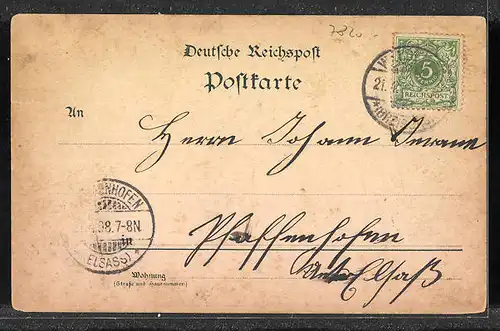 7820
Deutsche Reichspost
Postkarte
5
REICHSPOST
21.
An
Herrn Johann
ENHOFEN
98.7-8N.
ELSASS) *
in
Pfaffenhofen
Elsaß
Wohnung
(Straße und Hausnummer)